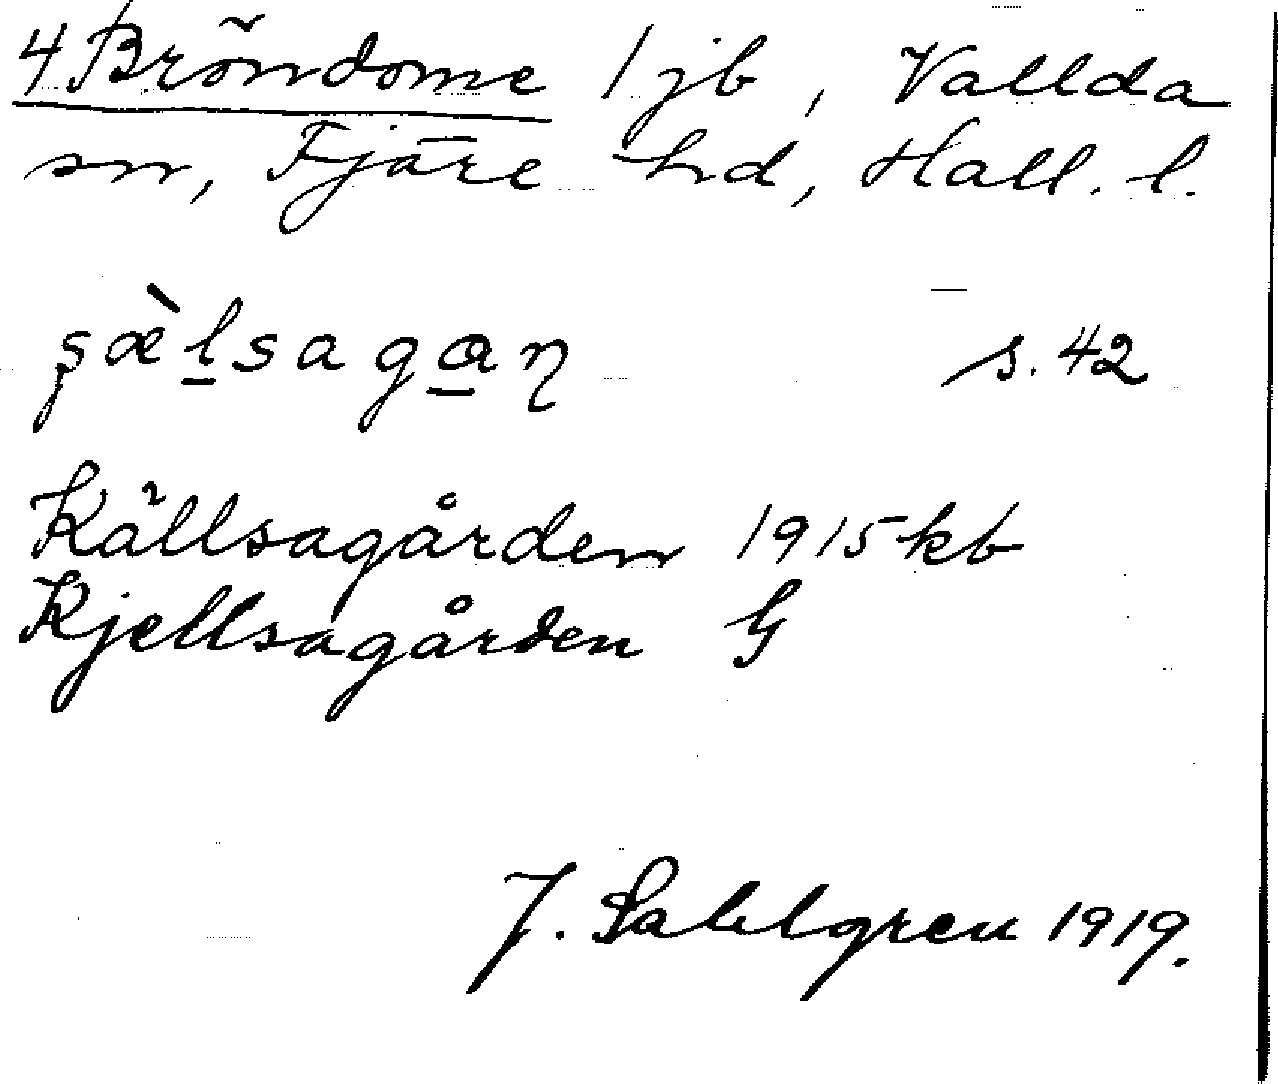 4 Bröndome 1 jb, Vallda
sn, Fjäre hd, Hall. l.
s. 42
Källsagården 1915 kb
Kjellsagården G
J. Sahlgren 1919.